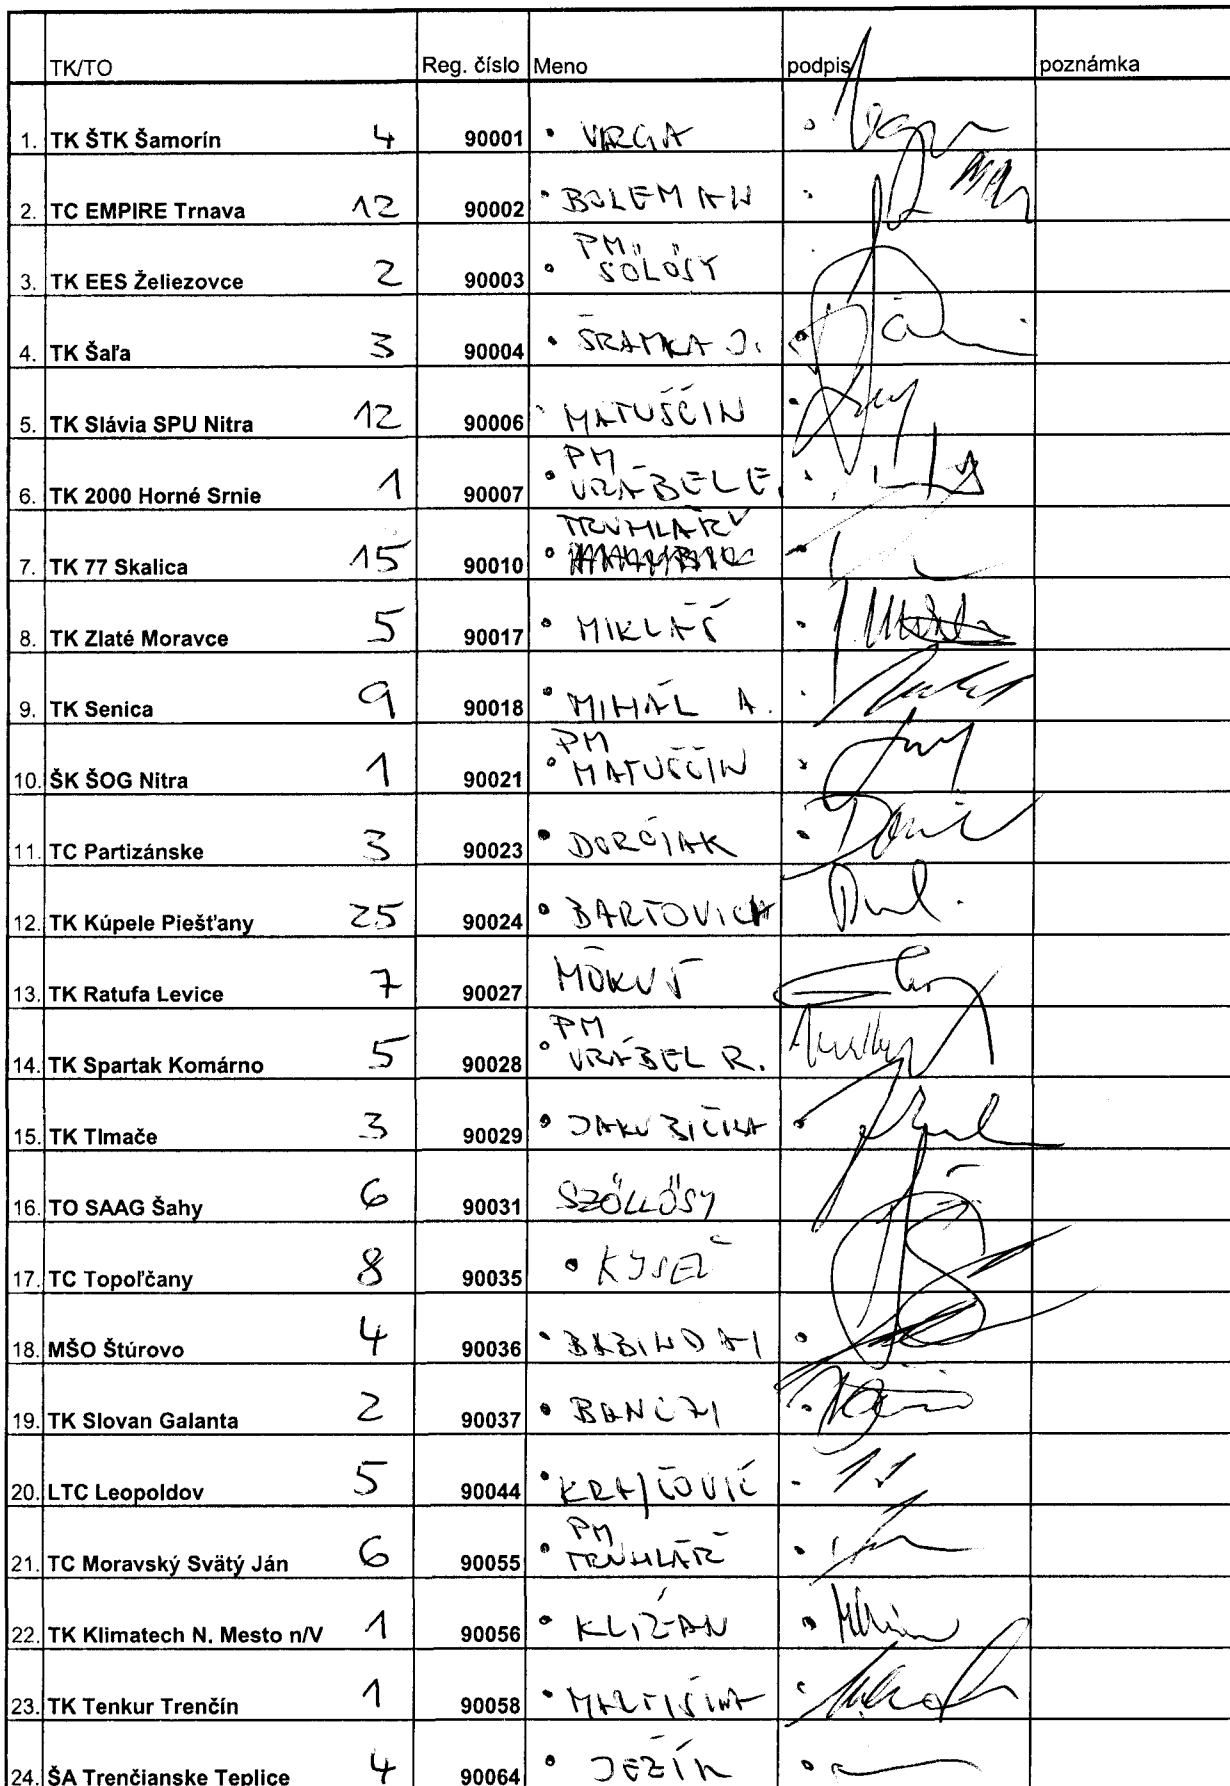 TK/TO Reg. číslo Meno podpis poznámka
1. TK ŠTK Šamorín 4 90001 • VARGA
2. TC EMPIRE Trnava 12 90002 • BOLEMAN
PM
3. TK EES Želiezovce 2 90003 • SÖLÖSY
4. TK Šaľa 3 90004 • ŠRAMKA J.
5. TK Slávia SPU Nitra 12 90006 MATUŠČIN
PM
6. TK 2000 Horné Srnie 1 90007 • VRÁBEL E.
TRUHLÁŘ
7. TK 77 Skalica 15 90010 •
8. TK Zlaté Moravce 5 90017 • MIKLÁŠ
9. TK Senica 9 90018 • MIHÁL A.
PM
10. ŠK ŠOG Nitra 1 90021 • MATUŠČIN
11. TC Partizánske 3 90023 • DORČIAK
12. TK Kúpele Piešťany 25 90024 • BARTOVICH
13. TK Ratufa Levice 7 90027 MÓKUŠ
PM
14. TK Spartak Komárno 5 90028 • VRÁBEL R.
15. TK Tlmače 3 90029 • JAKUBIČKA
16. TO SAAG Šahy 6 90031 SZÖLLÖSY
17. TC Topoľčany 8 90035 • KYSEĽ
18. MŠO Štúrovo 4 90036 • BABINDAI
19. TK Slovan Galanta 2 90037 •
20. LTC Leopoldov 5 90044 • KRAJČOVIČ
PM
21. TC Moravský Svätý Ján 6 90055 • TRUHLÁŘ
22. TK Klimatech N. Mesto n/V 1 90056 • KLIŽAN
23. TK Tenkur Trenčín 1 90058 •
24. ŠA Trenčianske Teplice 4 90064 • JEŽÍK